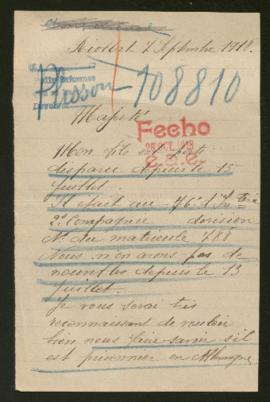 Septembre 1918.
Plisson 108810
Majesté
Fecho
26 OCT. 1918
Mon fils est porté
disparu depuis le 15
Juillet.
Il était au 76e d'Infterie
2e Compagnie division
No du matricule 781
Nous n'avons pas de
nouvelles depuis le 13
Juillet.
Je vous serai très
reconnaissant de vouloir
bien nous faire savoir s'il
est prisonnier en Allemagne